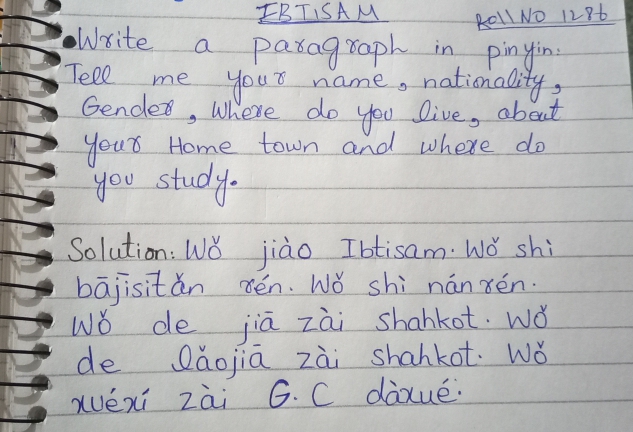 IBTISAM Roll NO 1286
•Write a paragraph in pinyin:
Tell me your name, nationality,
Gender, Where do you live, about
your Home town and where do
you study.
Solution: Wǒ jiào Ibtisam. Wǒ shì
bājīsītǎn rén. Wǒ shì nánrén.
Wǒ de jiā zài Shahkot. Wǒ
de lǎojiā zài Shahkot. Wǒ
xuéxí zài G.C dàxué.